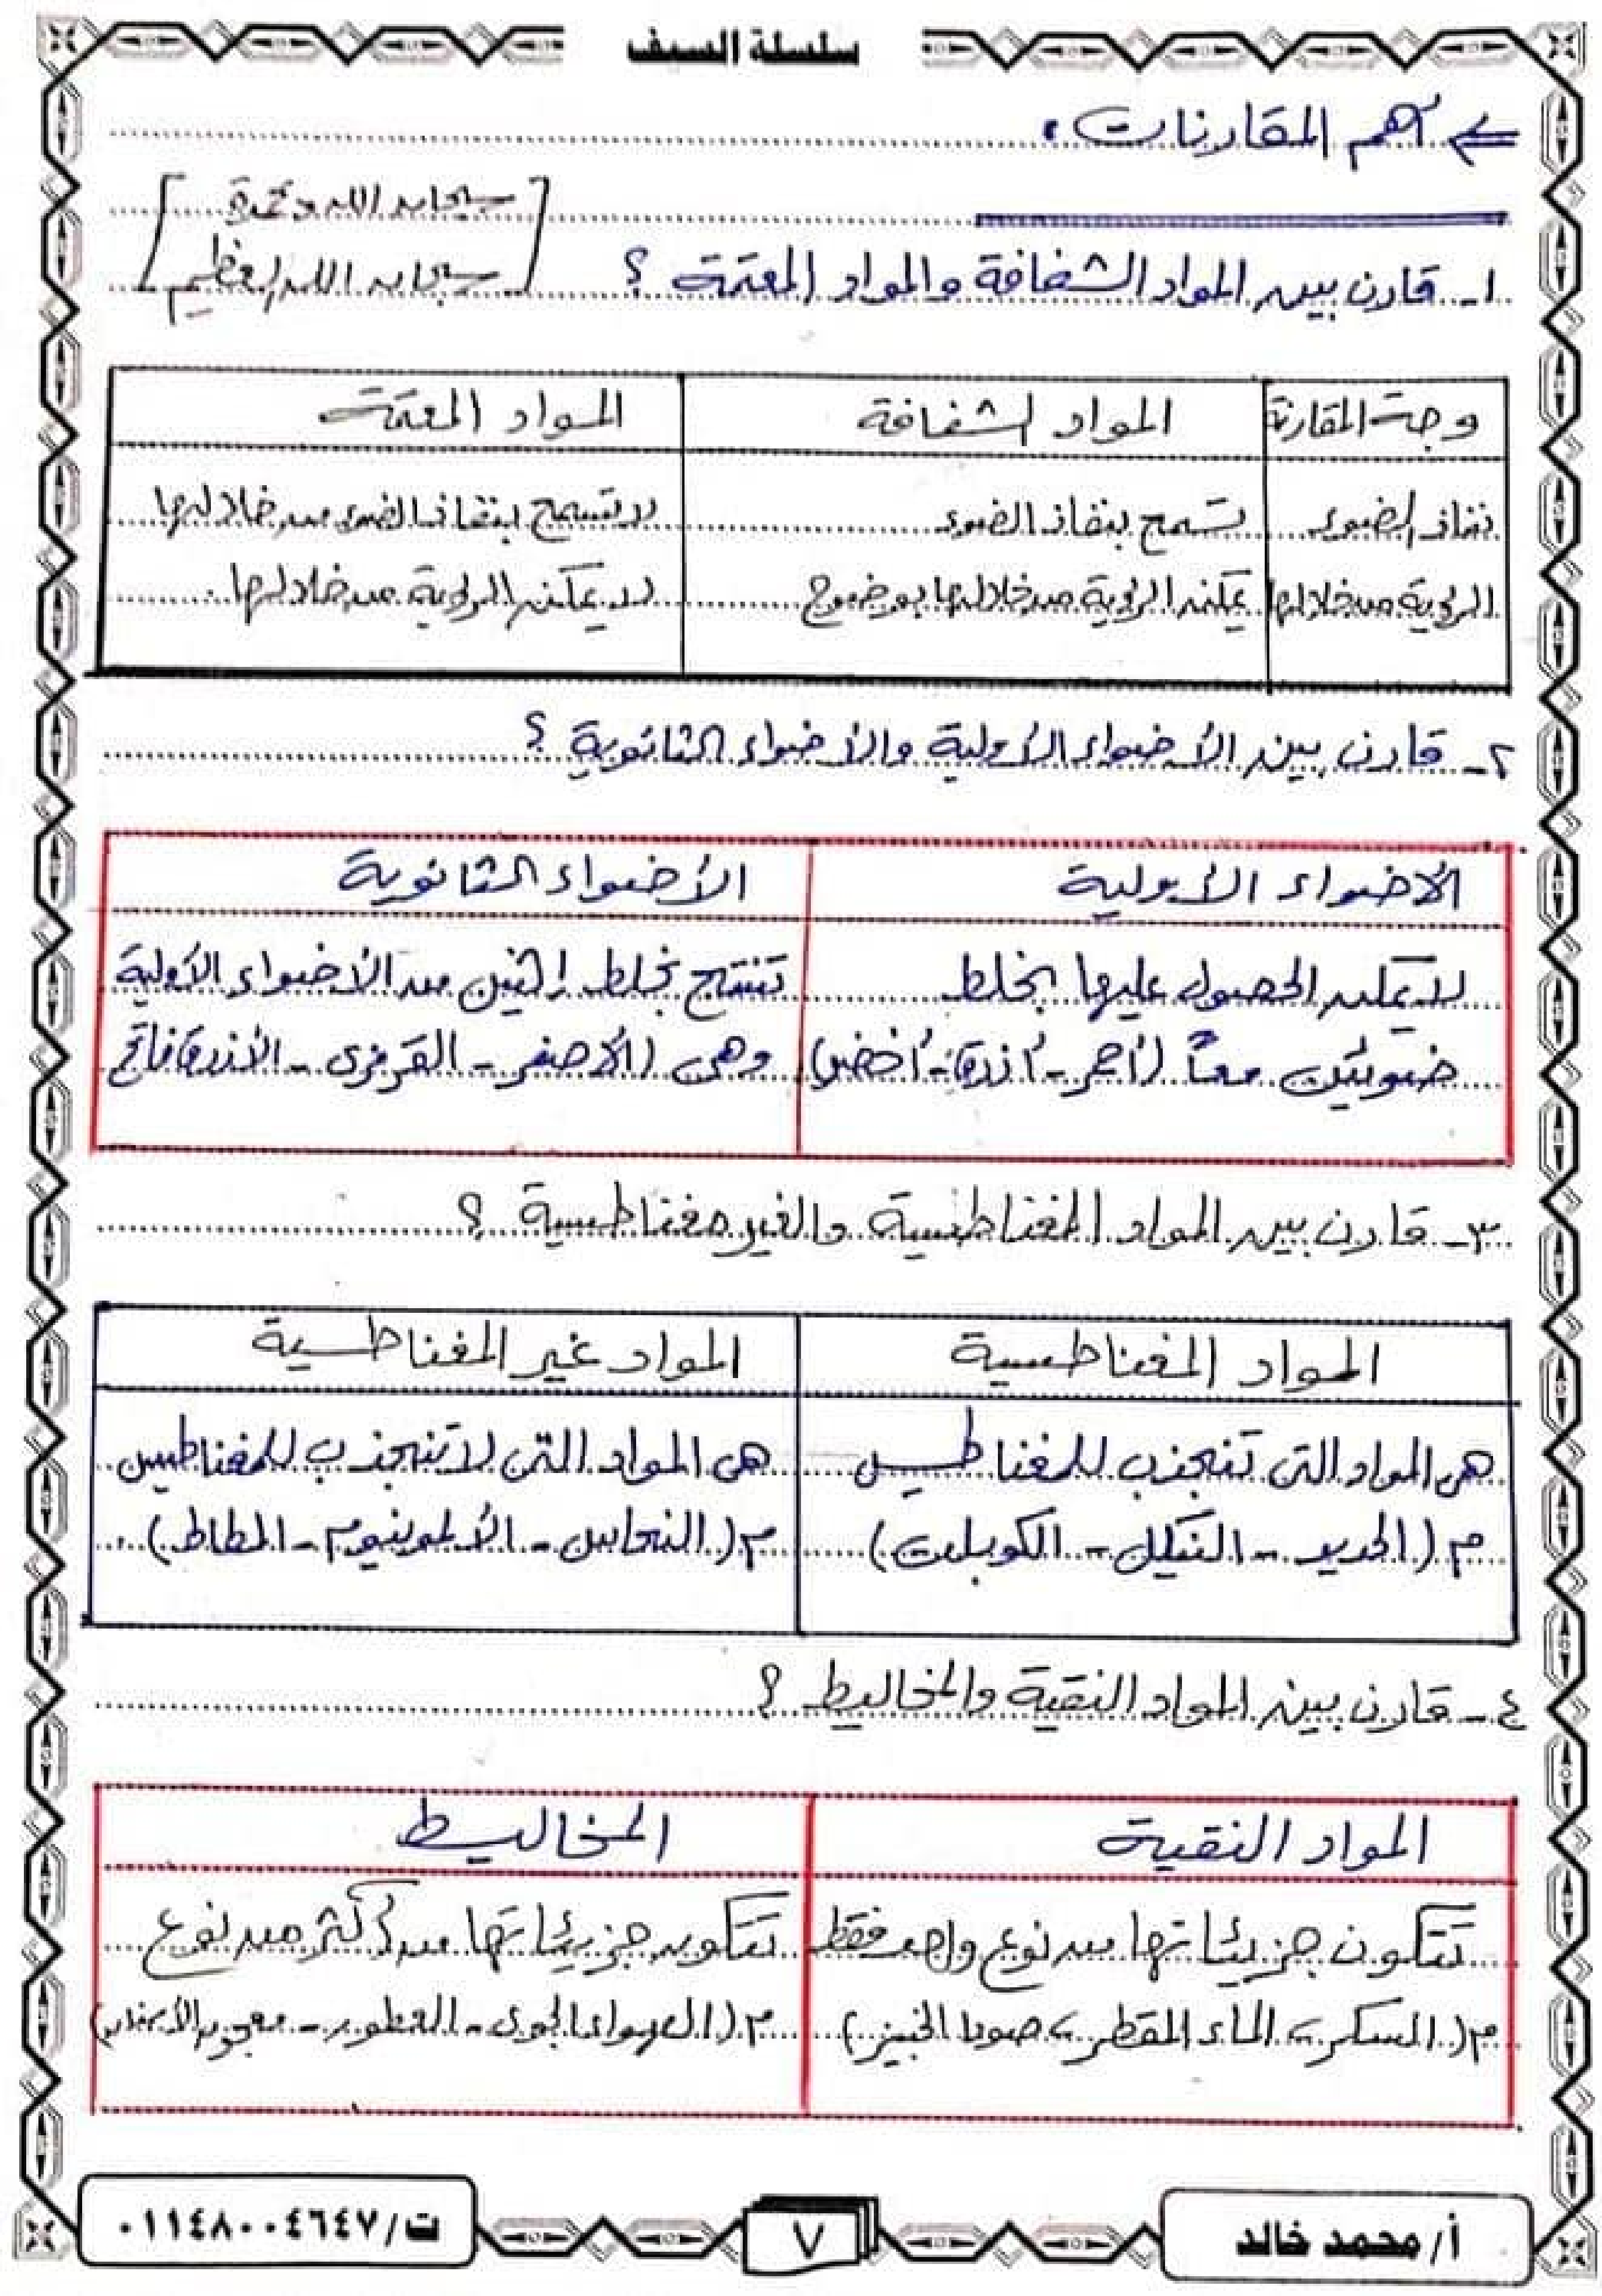 سلسلة السيف
أهم المقارنات :
[سبحان الله وبحمده
سبحان الله العظيم]
١- قارن بين المواد الشفافة والمواد المعتمة ؟
وجه المقارنة المواد الشفافة المواد المعتمة
نفاذ الضوء تسمح بنفاذ الضوء لا تسمح بنفاذ الضوء من خلالها
الرؤية من خلالها يمكن الرؤية من خلالها بوضوح لا يمكن الرؤية من خلالها
٢- قارن بين الأضواء الأولية والأضواء الثانوية ؟
الأضواء الأولية الأضواء الثانوية
لا يمكن الحصول عليها بخلط تنتج بخلط اثنين من الأضواء الأولية
ضوئين معاً (أحمر - أزرق - أخضر) وهى (الأصفر - القرمزى - الأزرق فاتح
٣- قارن بين المواد المغناطيسية والغير مغناطيسية ؟
المواد المغناطسية المواد غير المغناطسية
هى المواد التى تنجذب للمغناطيس هى المواد التى لا تنجذب للمغناطيس
م (الحديد - النيكل - الكوبلت) م (النحاس - الألومنيوم - المطاط)
٤- قارن بين المواد النقية والمخاليط ؟
المواد النقية المخاليط
تتكون جزيئاتها من نوع واحد فقط تتكون جزيئاتها من أكثر من نوع
م (السكر، الماء المقطر، صودا الخبيز) م (الهواء الجوى - العطور - معجون الأسنان)
أ/ محمد خالد
٧
ت/ ٠١١٤٨٠٠٤٦٤٧